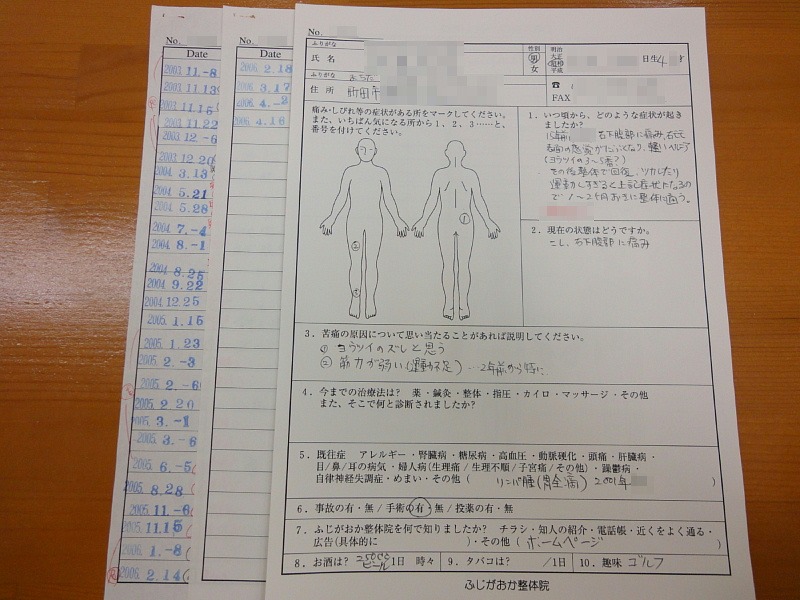 No.
Date
2003.11.-8
2003.11.13
2003.11.15
2003.11.22
2003.12.-6
2003.12.20
2004.3.13
2004.5.21
2004.5.28
2004.7.-4
2004.8.-1
2004.8.25
2004.9.22
2004.12.25
2005.1.15
2005.1.23
2005.2.-3
2005.2.-6
2005.2.20
2005.3.-1
2005.3.-6
2005.6.-5
2005.8.28
2005.11.-6
2005.11.15
2006.1.-8
2006.2.14
No.
Date
2006.2.18
2006.3.17
2006.4.-2
2006.4.16
No.
ふりがな
氏名
性別 男 女
明治 大正 昭和 平成
日生4 才
ふりがな
住所 町田市
☎
FAX
痛み・しびれ等の症状がある所をマークしてください。
また、いちばん気になる所から1、2、3……と、
番号を付けてください。
① 
② 
1.いつ頃から、どのような症状が起き
ましたか?
右下腹部に痛み、右元
その後整体で回復、ツカレたり
運動しすぎると上記症状になるの
で1〜2ヶ月おきに整体に通う。
2.現在の状態はどうですか。
こし、右下腹部に痛み
3.苦痛の原因について思い当たることがあれば説明してください。
① ヨウツイのズレと思う
② 筋力が弱い(運動不足)…2年前から特に
4.今までの治療法は? 薬・鍼灸・整体・指圧・カイロ・マッサージ・その他
また、そこで何と診断されましたか?
5.既往症 アレルギー・腎臓病・糖尿病・高血圧・動脈硬化・頭痛・肝臓病・
目/鼻/耳の病気・婦人病(生理痛/生理不順/子宮痛/その他)・躁鬱病・
自律神経失調症・めまい・その他( リンパ腫(胃全摘) 2001年 )
6.事故の有・無/手術の有・無/投薬の有・無
7.ふじがおか整体院を何で知りましたか? チラシ・知人の紹介・電話帳・近くをよく通る・
広告(具体的に )・その他( ホームページ )
8.お酒は? ビール 1日 時々 9.タバコは? /1日 10.趣味 ゴルフ
ふじがおか整体院